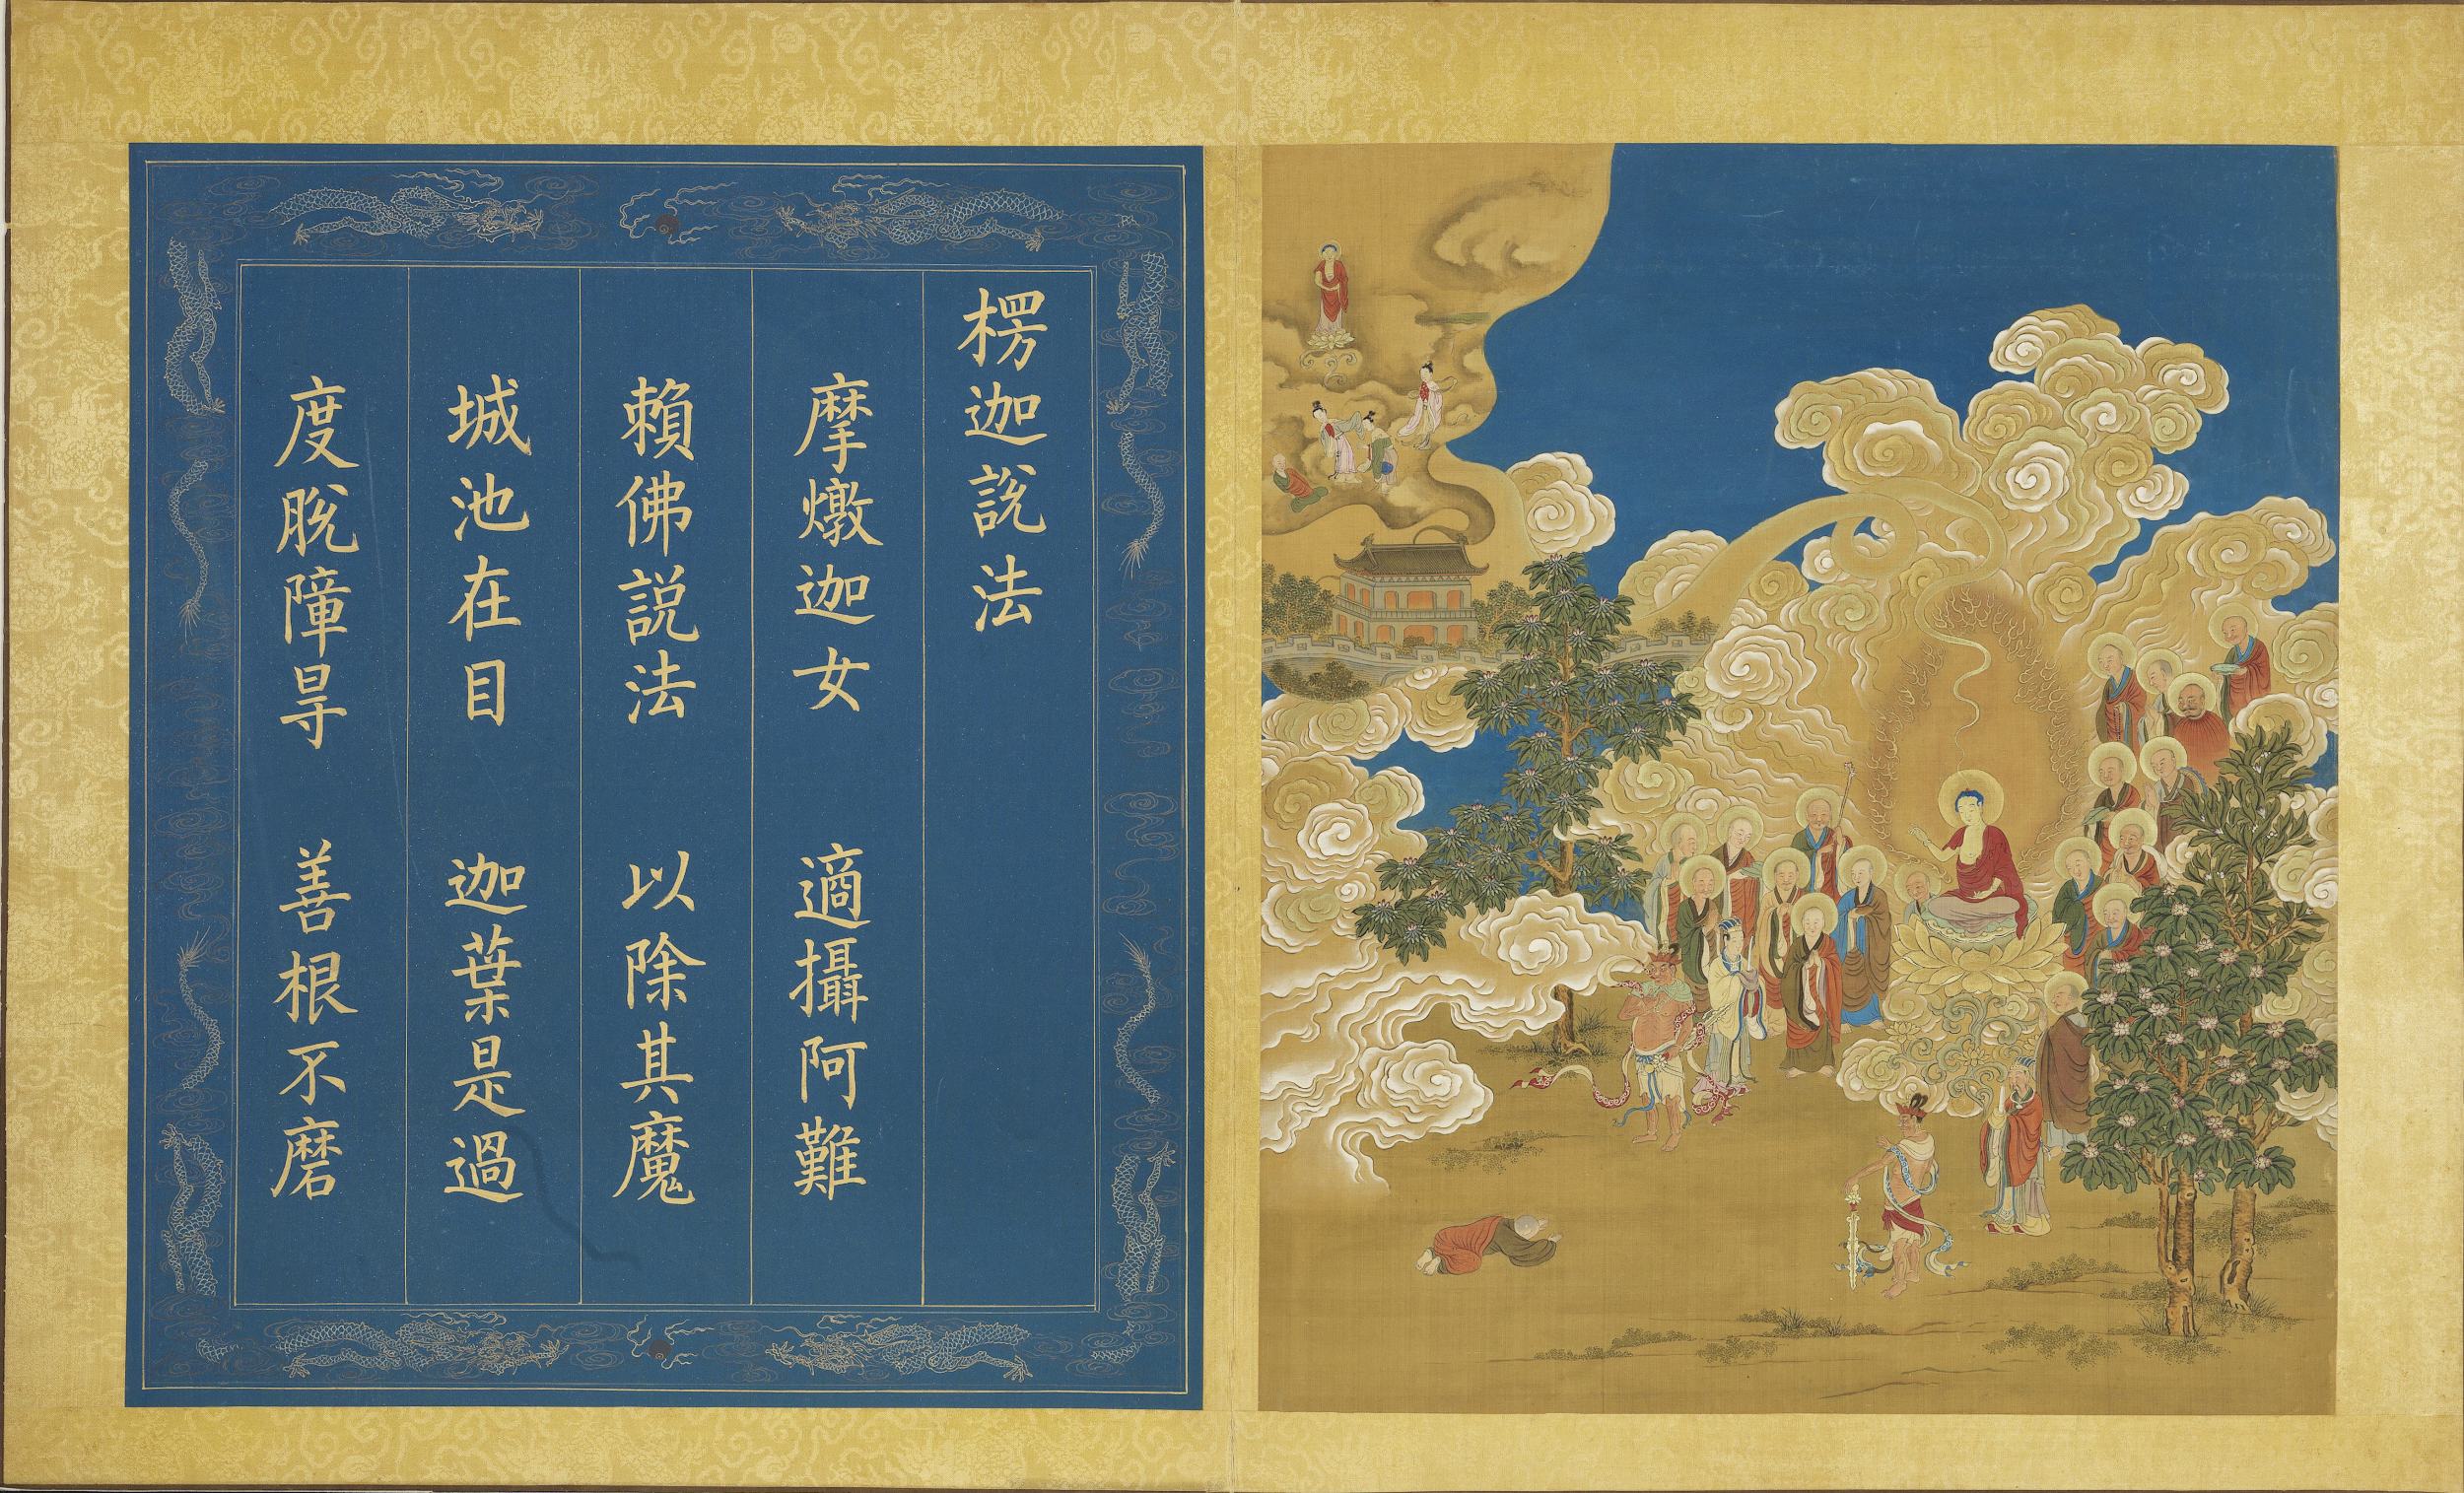 楞迦説法
摩燉迦女　適攝阿難
賴佛説法　以除其魔
城池在目　迦葉是過
度脫障㝵　善根不磨